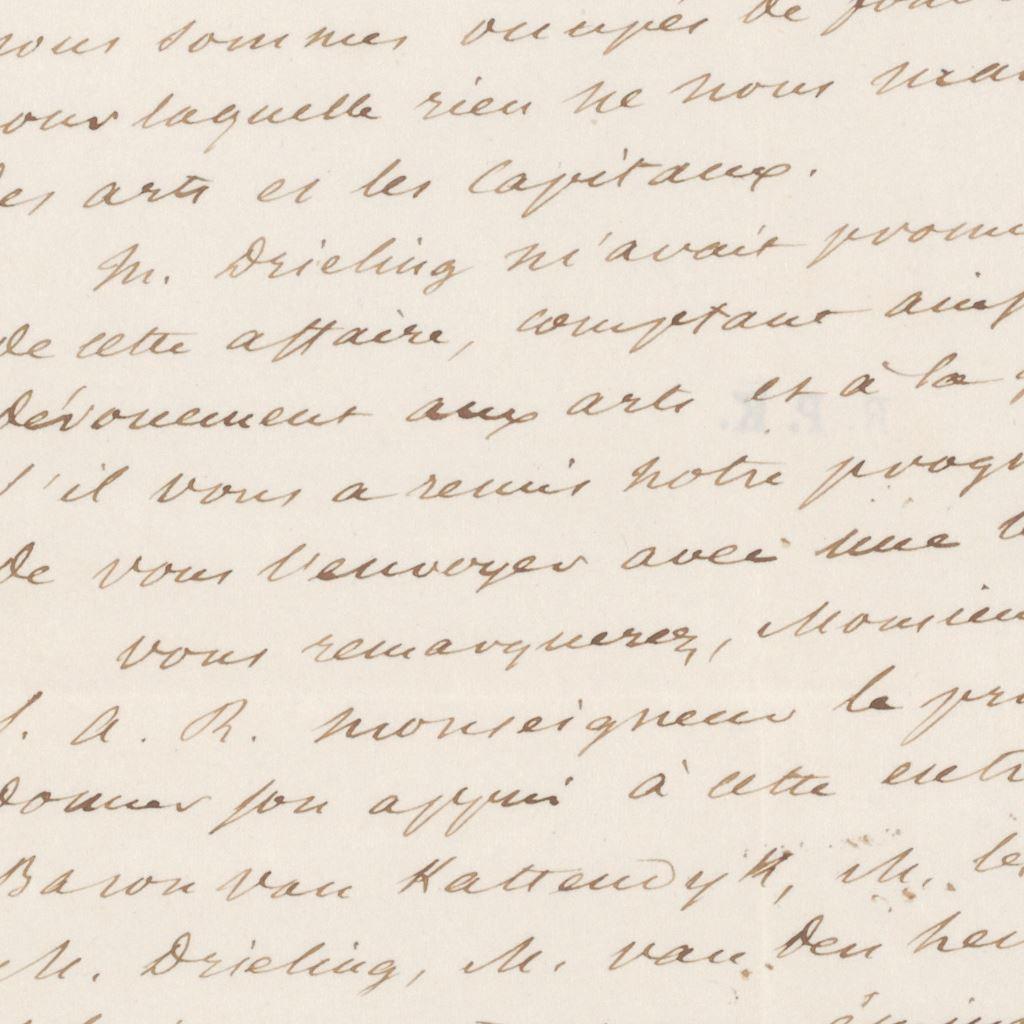 nous sommes occupés de
our laquelle rien ne nous man
les arts et les capitaux.
M. Drieling m'avait promi
de cette affaire, comptant ainsi
dévouement aux arts et à la
s'il vous a remis notre progr
de vous l'envoyer avec une
vous remarquerez, Monsieu
S. A. R. Monseigneur le pri
donner son appui à cette entr
Baron van Kattendyk, M. le
M. Drieling, M. van den heu